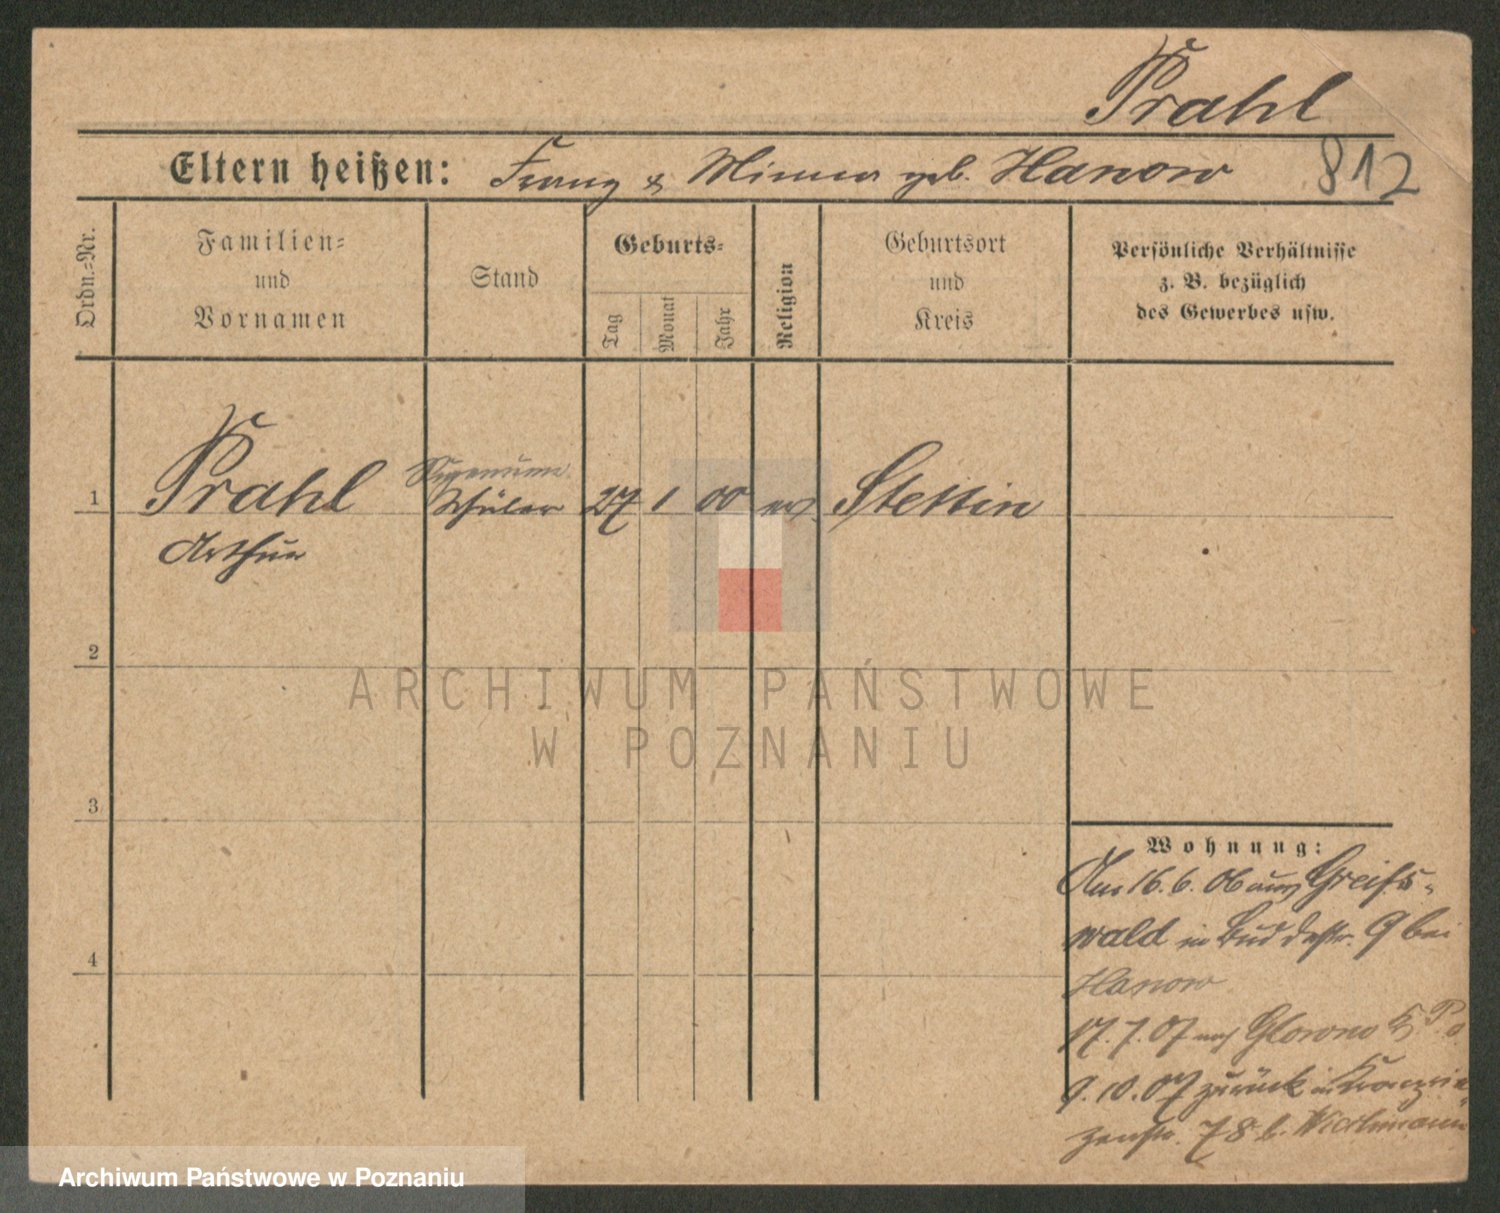 Prahl
Eltern heißen: Franz & Minna geb. Hanow 812
Ordn.=Nr.
Familien=
und
Vornamen
Stand
Geburts=
Tag
Monat
Jahr
Religion
Geburtsort
und
Kreis
Persönliche Verhältnisse
z. B. bezüglich
des Gewerbes usw.
1 Prahl Schüler 27 1 00 ev. Stettin
Arthur
2
3
4
ARCHIWUM PAŃSTWOWE
W POZNANIU
Wohnung:
Am 16.6.06 aus Greifs-
wald in Buddestr. 9 bei
Hanow
17.7.07 nach Glowno
9.10.07 zurück in Kronprin-
zenstr. 78 b.
Archiwum Państwowe w Poznaniu